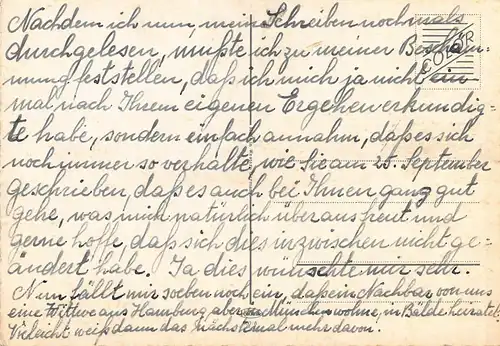 Nachdem ich nun, mein Schreiben nochmals
durchgelesen, mußte ich zu meiner Beschäm-
mung feststellen, daß ich mich ja nicht ein
COLOR
mal nach Ihrem eigenen Ergehen erkundig-
te habe, sondern einfach annahm, daß es sich
noch immer so verhalte, wie Sie am 25. September
geschrieben, daß es auch bei Ihnen ganz gut
gehe, was mich natürlich überaus freut und
gerne hoffe, daß sich dies inzwischen nicht ge-
ändert habe. Ja dies wünschte mir sehr.
Nun fällt mir soeben noch ein, daß ein Nachbar von uns
eine Witwe aus Hamburg, aber in München wohne, in Bälde heiratet.
Vieleicht weiß dann das nächstemal mehr davon.